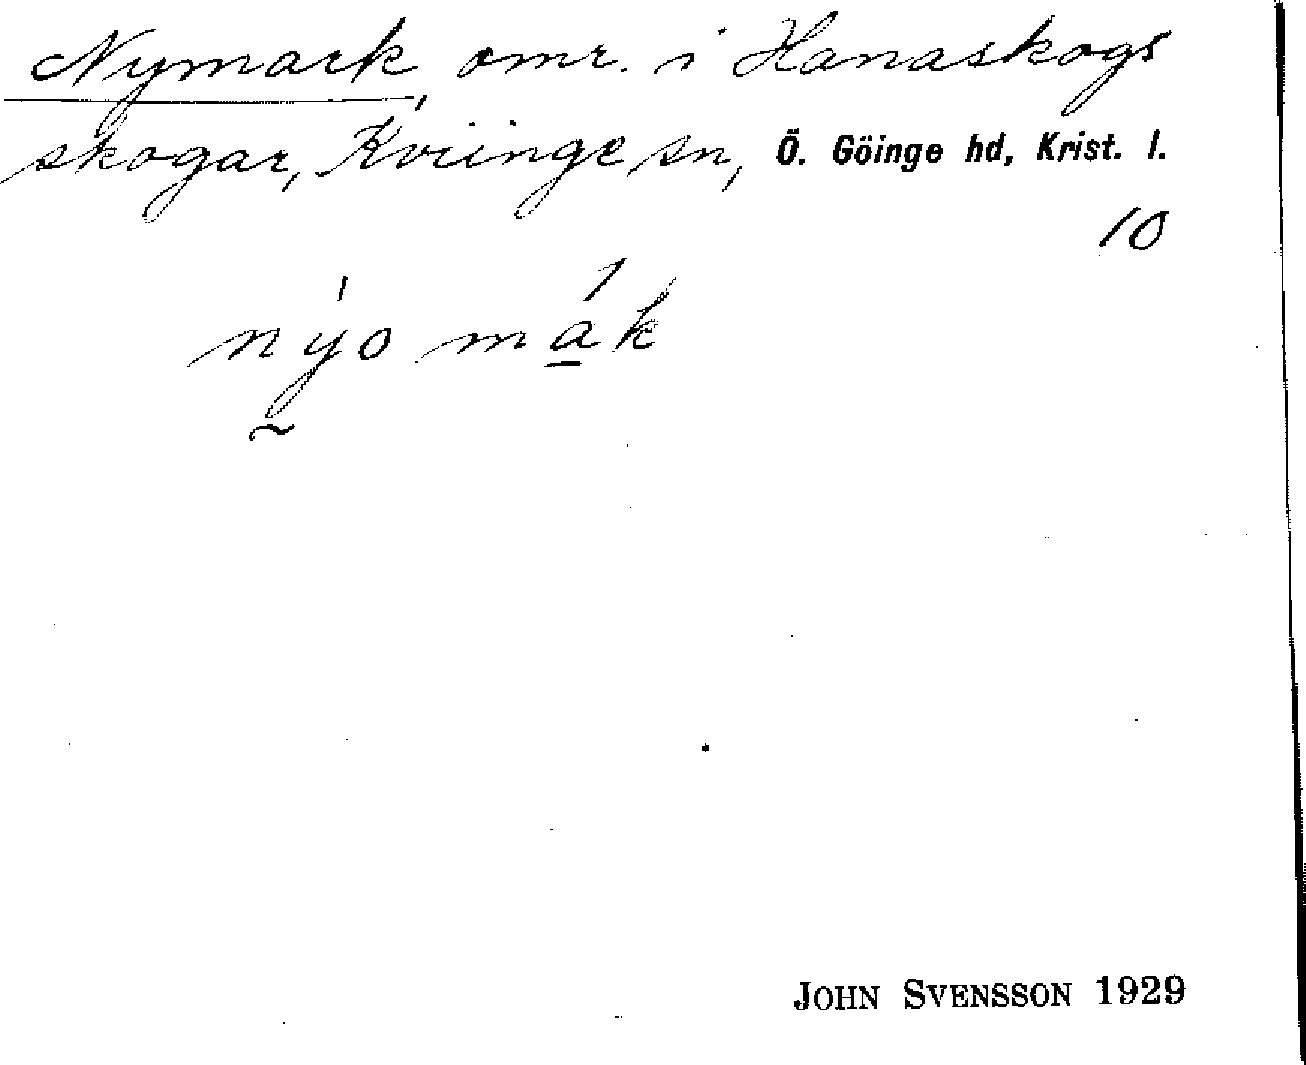 Nymark, omr. i Hanaskogs
skogar, Kviinge sn, Ö. Göinge hd, Krist. l.
10
nýo mák
JOHN SVENSSON 1929